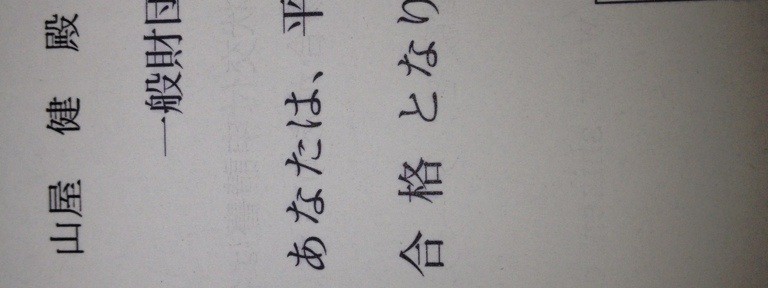 山屋 健 殿
一般財団
あなたは、平
合格となり